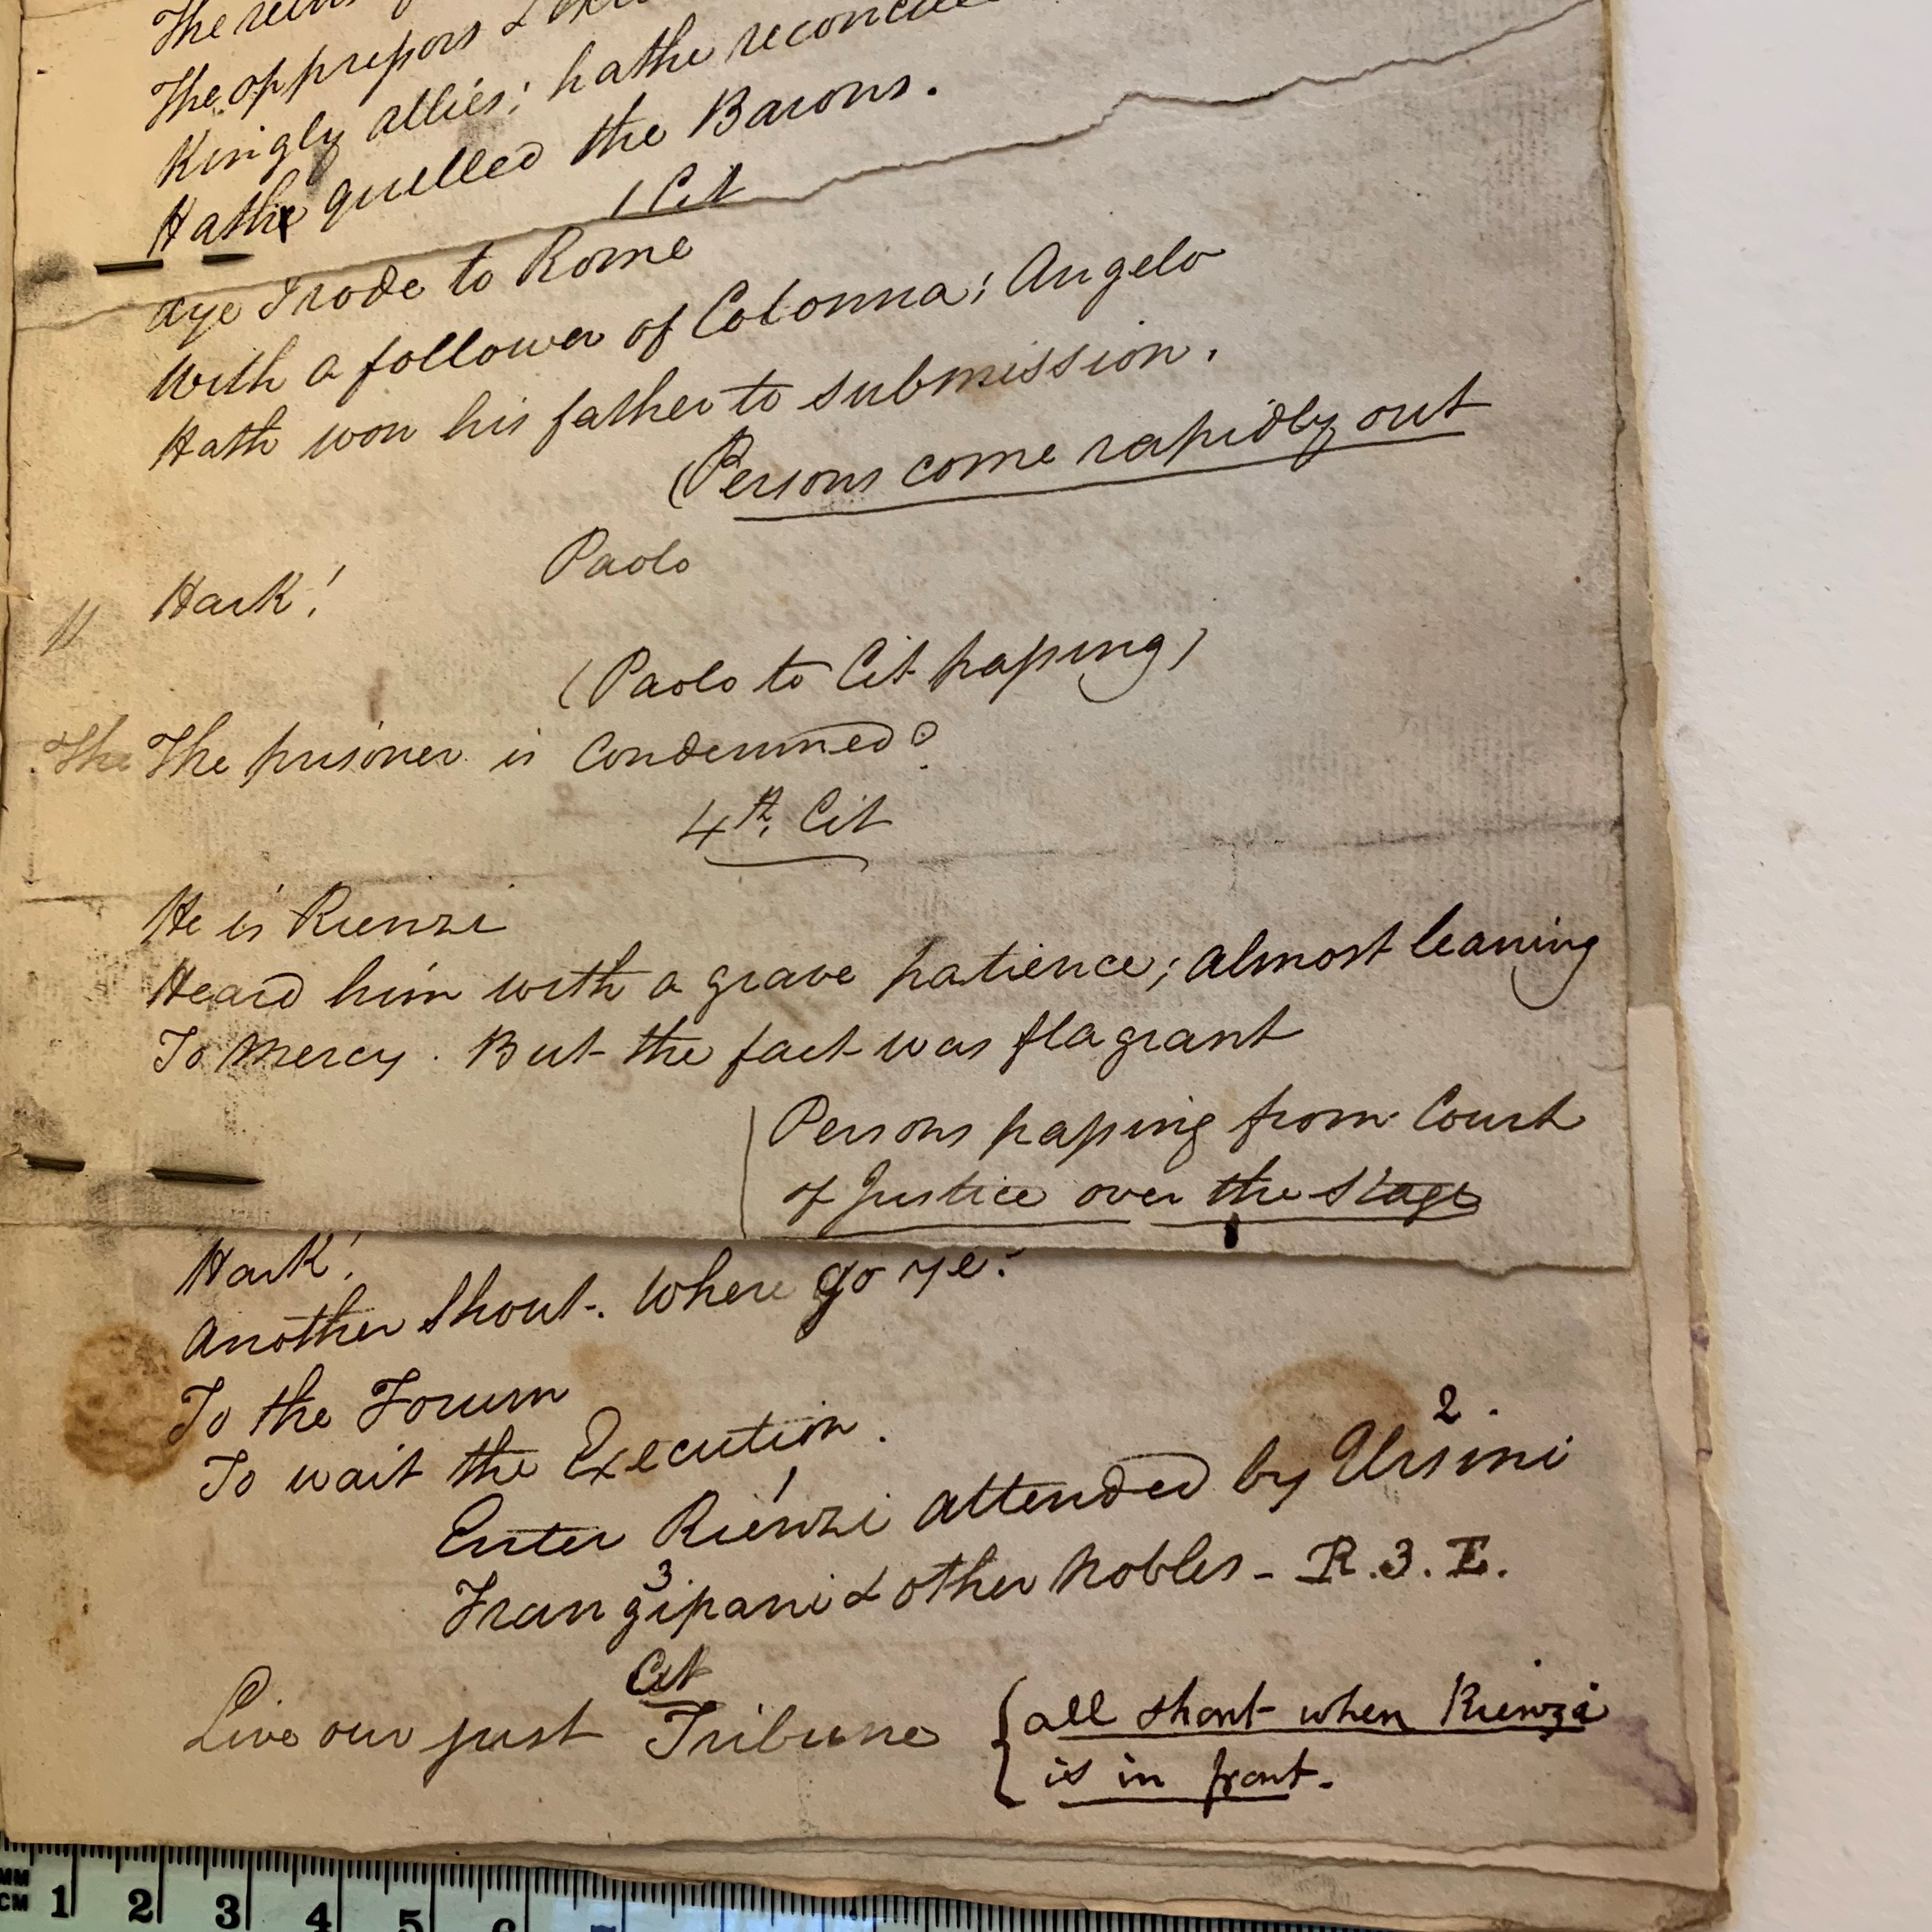 The
The oppressors &
Kingly allies; hathe
Hath quelled the Barons.
1 Cit
Aye I rode to Rome
With a follower of Colonna; Angelo
Hath won his father to submission.
(Persons come rapidly out
Paolo
Hark!
(Paolo to Cit passing)
The The prisoner is Condemned?
4th. Cit
He is Rienzi
Heard him with a grave patience; almost leaning
To Mercy. But the fact was flagrant
Persons passing from Court
of Justice over the Stage
Hark!
Another Shout. Where go ye?
To the Forum
To wait the Execution.
2.
Enter Rienzi attended by Ursini
1
3
Frangipani & other Nobles - R.3.E.
Cit
Live our just Tribune { all shout when Rienzi
is in front.
MM
CM 1 2 3 4 5 6 7